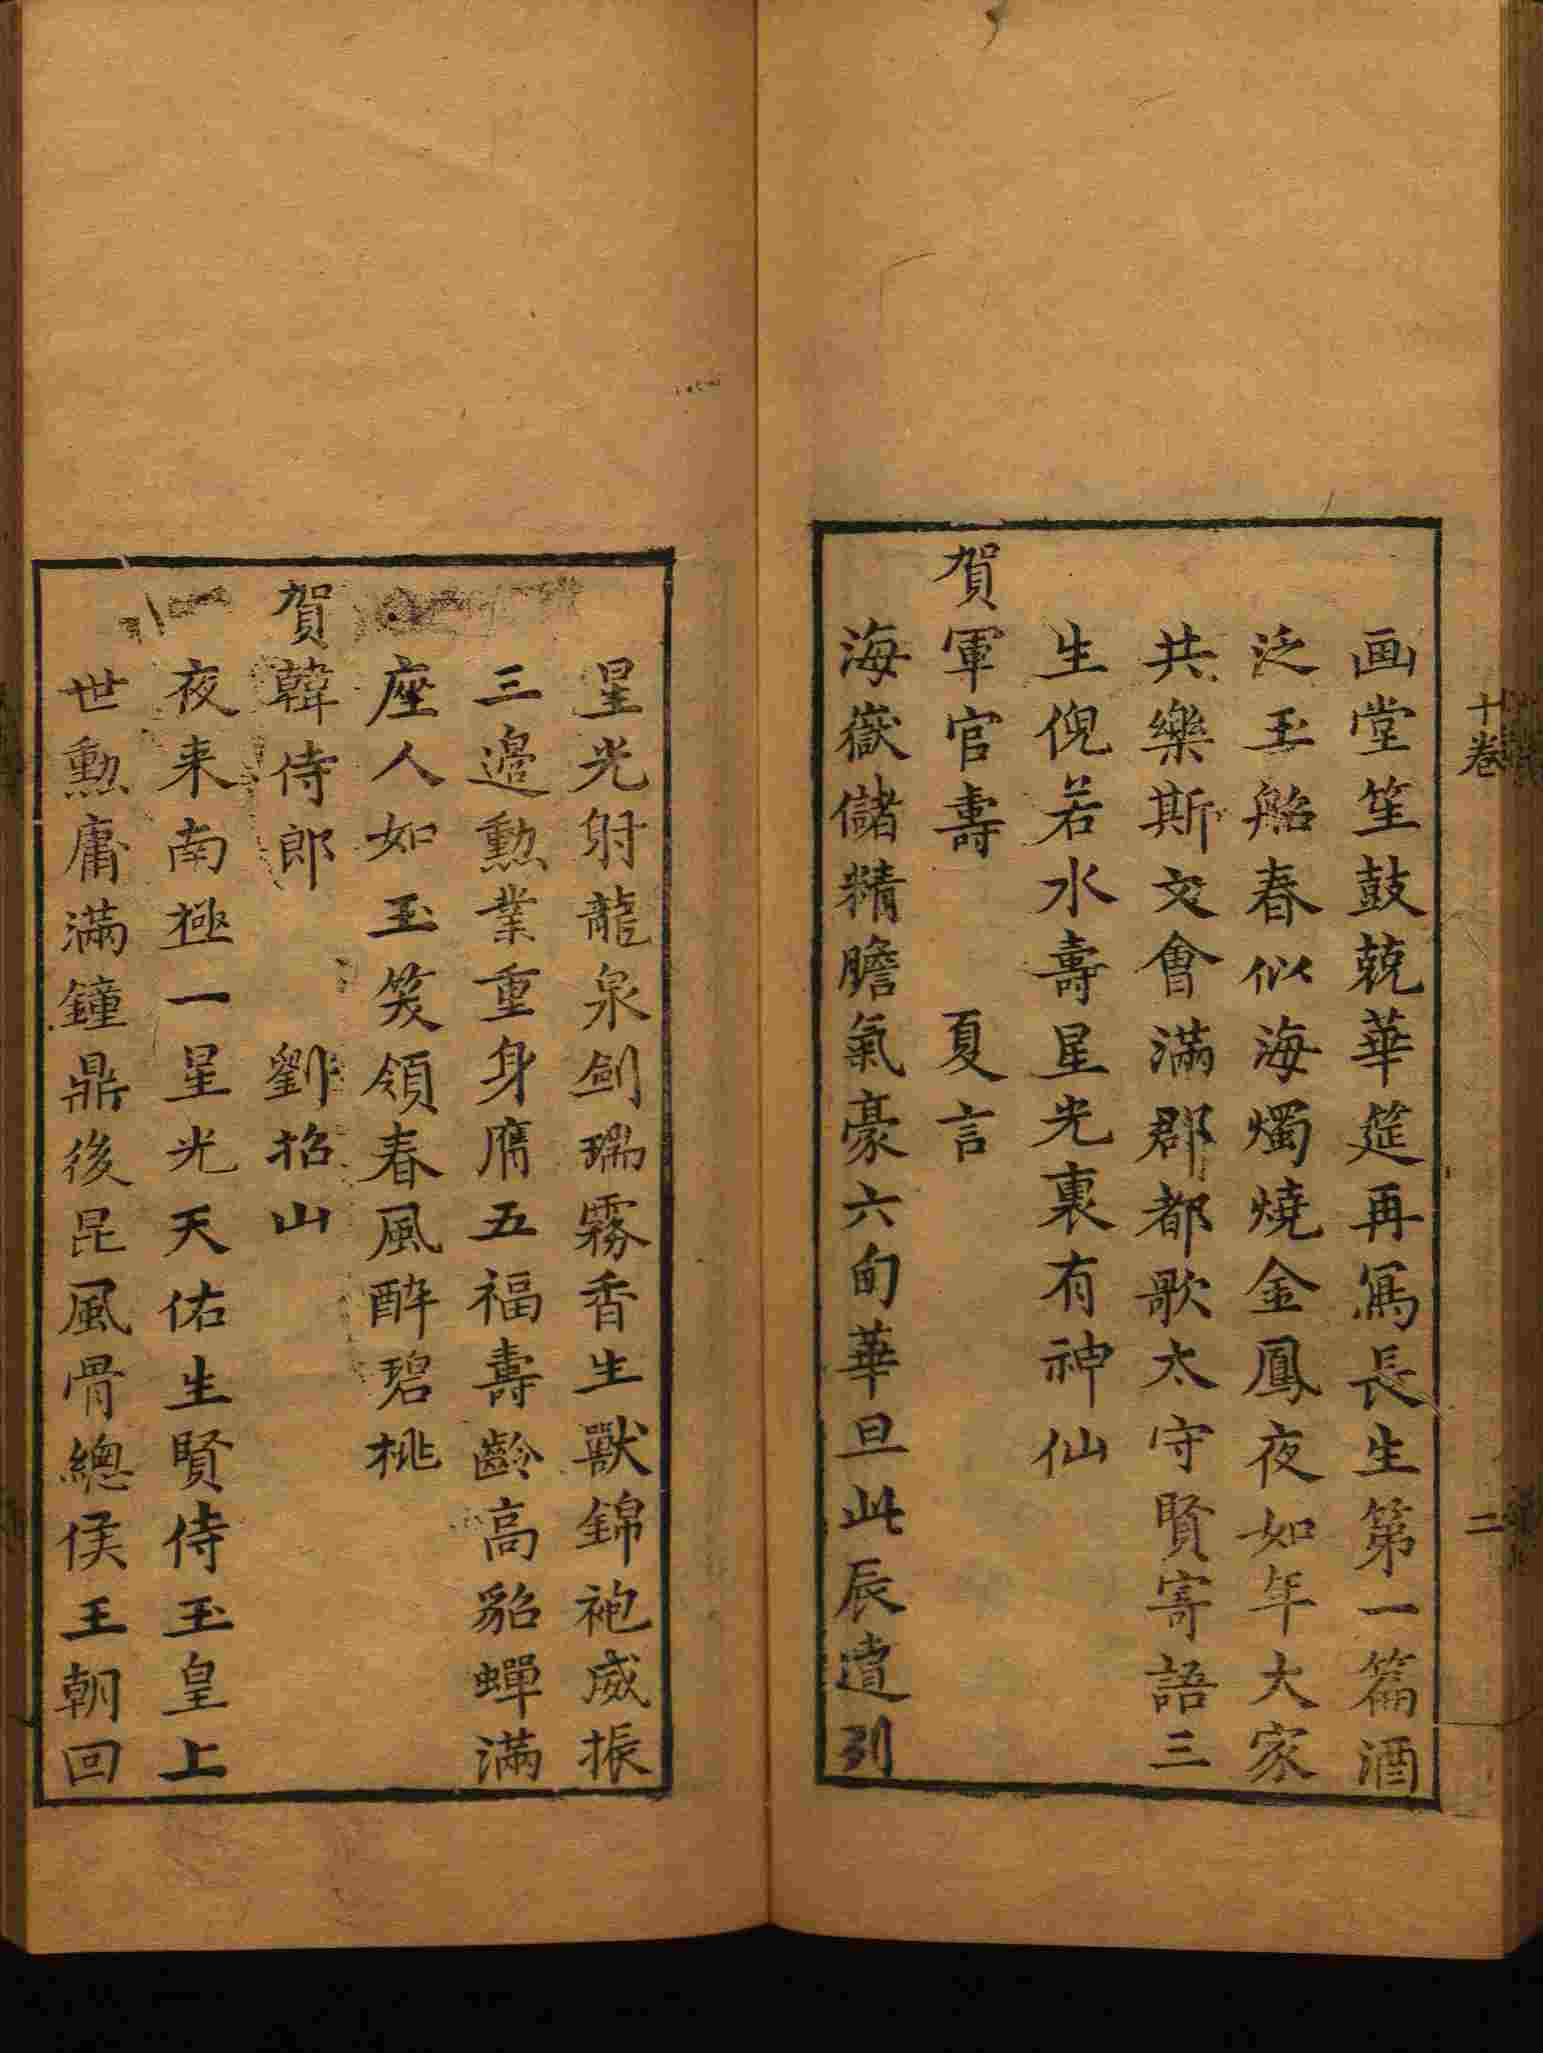 十卷
二
画堂笙鼓兢華筵再寫長生第一篇酒
泛玉船春似海燭燒金鳳夜如年大家
共樂斯文會滿郡都歌太守賢寄語三
生倪若水壽星光裏有神仙
賀軍官壽 夏言
海嶽儲精膽氣豪六旬華旦此辰遭列
星光射龍泉劍瑞霧香生獸錦袍威振
三邉勲業重身膺五福壽齡高貂蟬滿
座人如玉笑領春風醉碧桃
賀韓侍郎 劉招山
夜来南極一星光天佑生賢侍玉皇上
世勲庸滿鐘鼎後昆風骨總侯王朝回